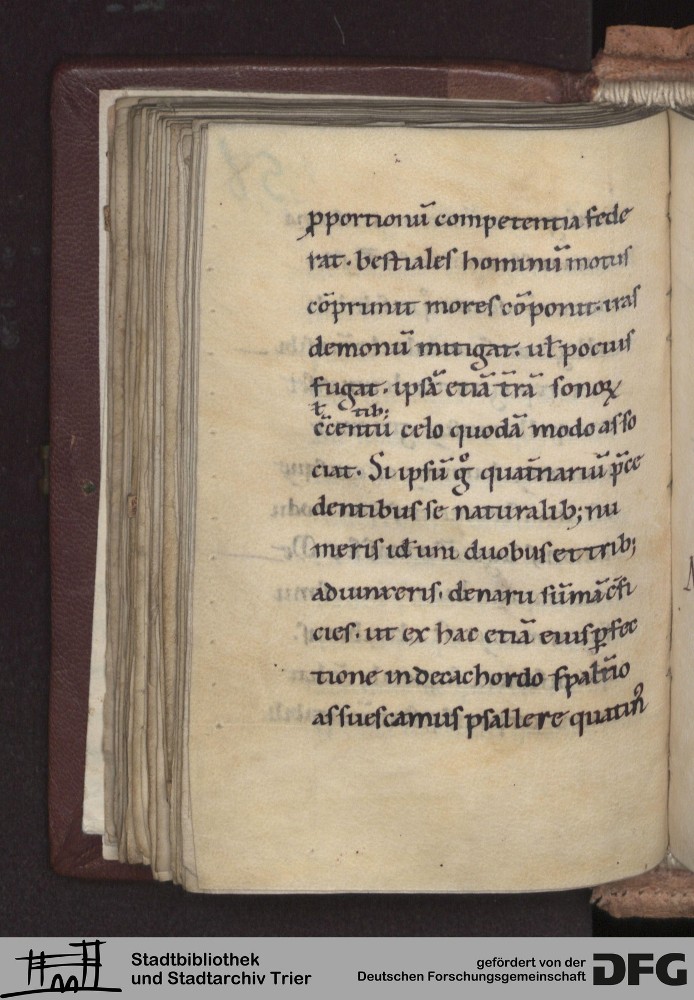 ꝓportionū competentia fede
rat. bestiales hominū motus
cōprimit mores cōponit. iras
demonū mitigat. ul̄ pocius
fugat. ipsā etiā t̄rā sonoꝝ
ł tib;
c̄centū celo quodā modo asso
ciat. Si ipsū gͦ quat̄nariū p̄ce
dentibus se naturalib; nu
meris id uni duobus et trib;
adiunxeris. denarii sūmā c̄fi
cies. ut ex hac etiā eius ꝑfec
tione in decachordo spal̄tio
assuescamus psallere quatin᷒
Stadtbibliothek
und Stadtarchiv Trier
gefördert von der
Deutschen Forschungsgemeinschaft
DFG